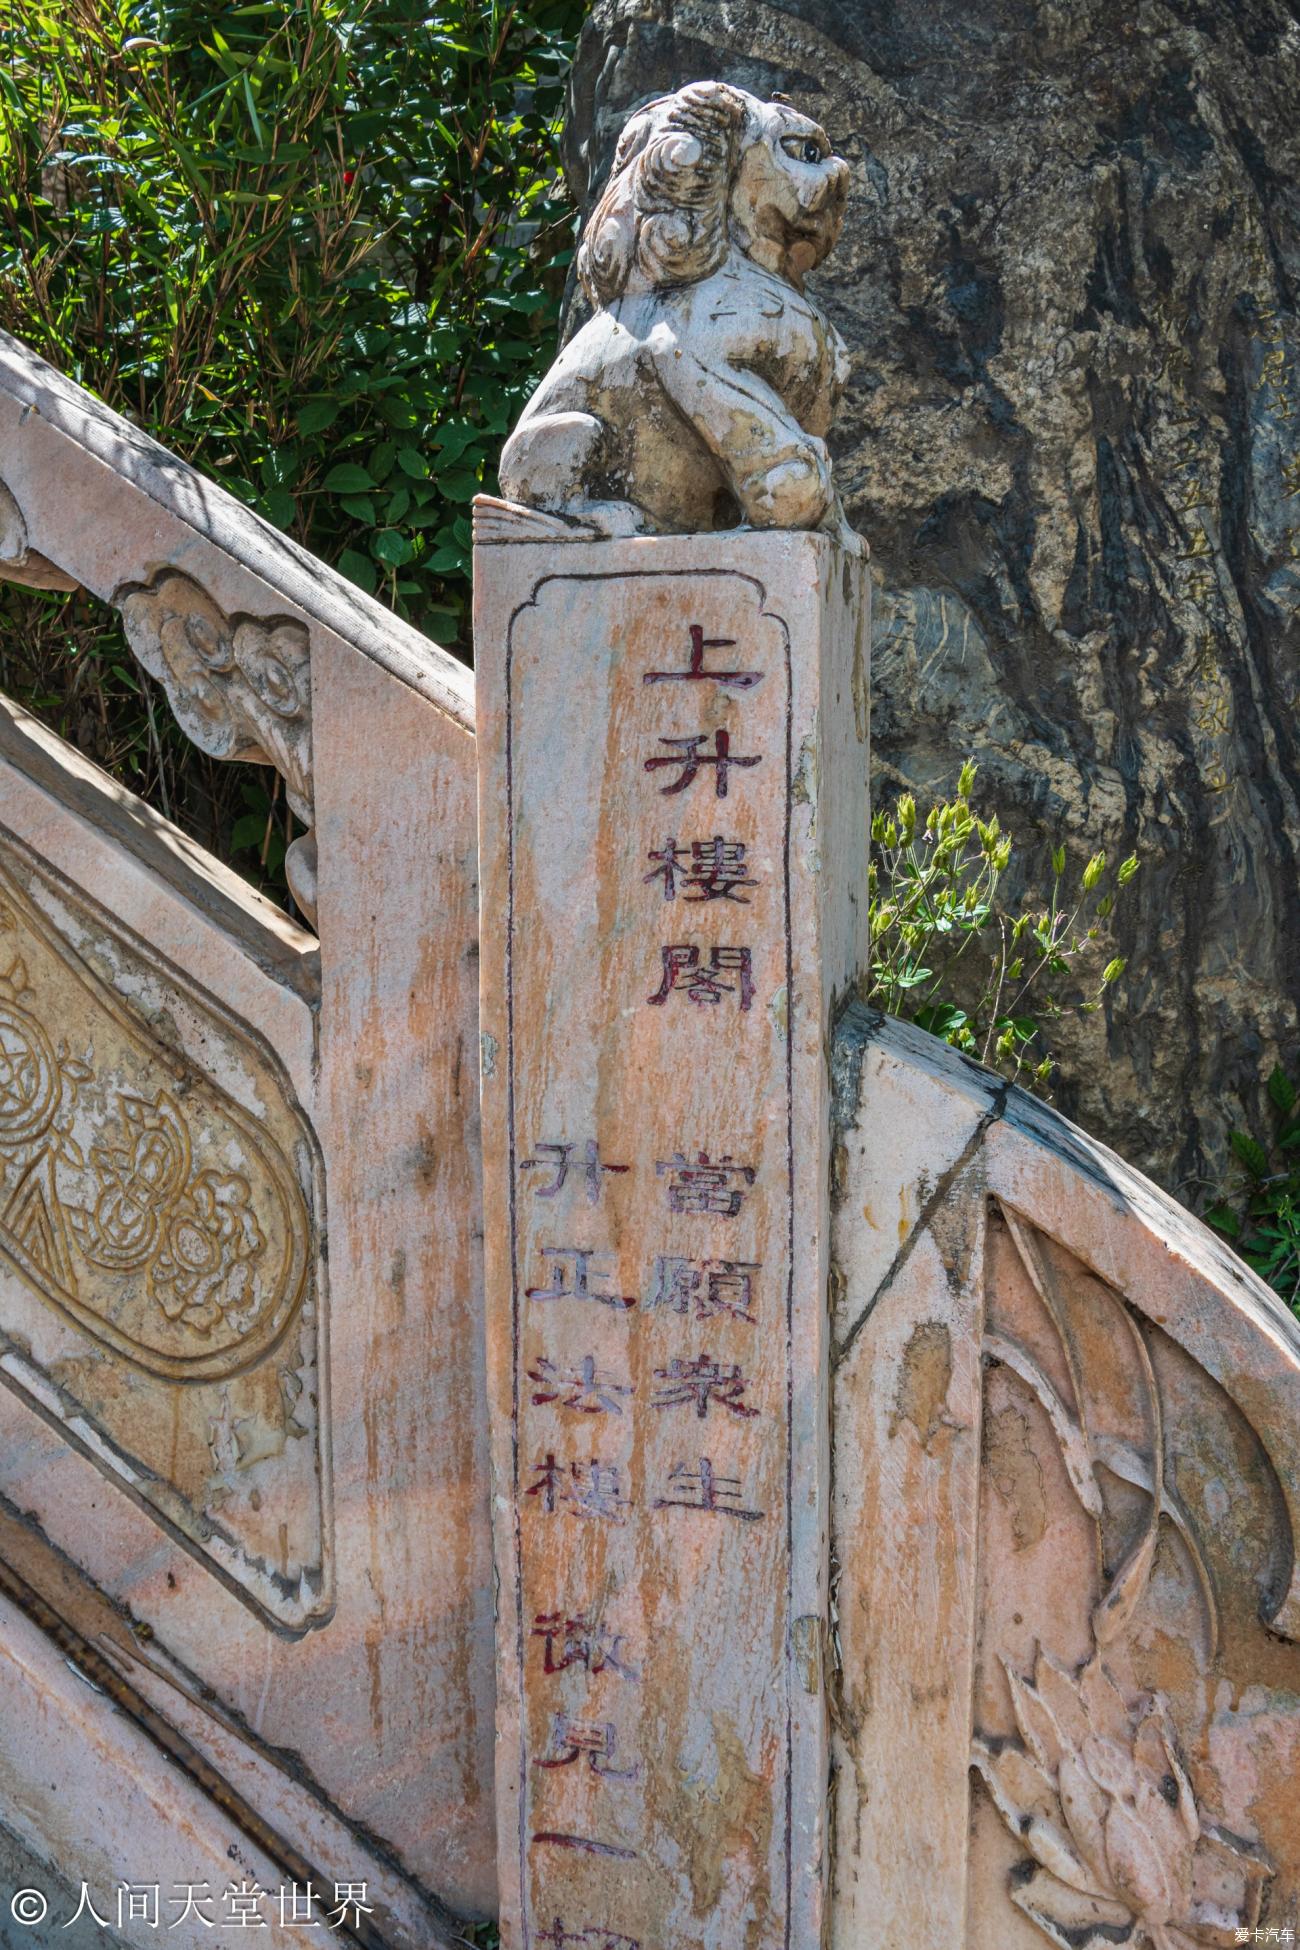 上升樓閣 當願衆生
升正法樓 徹見一
© 人间天堂世界
爱卡汽车